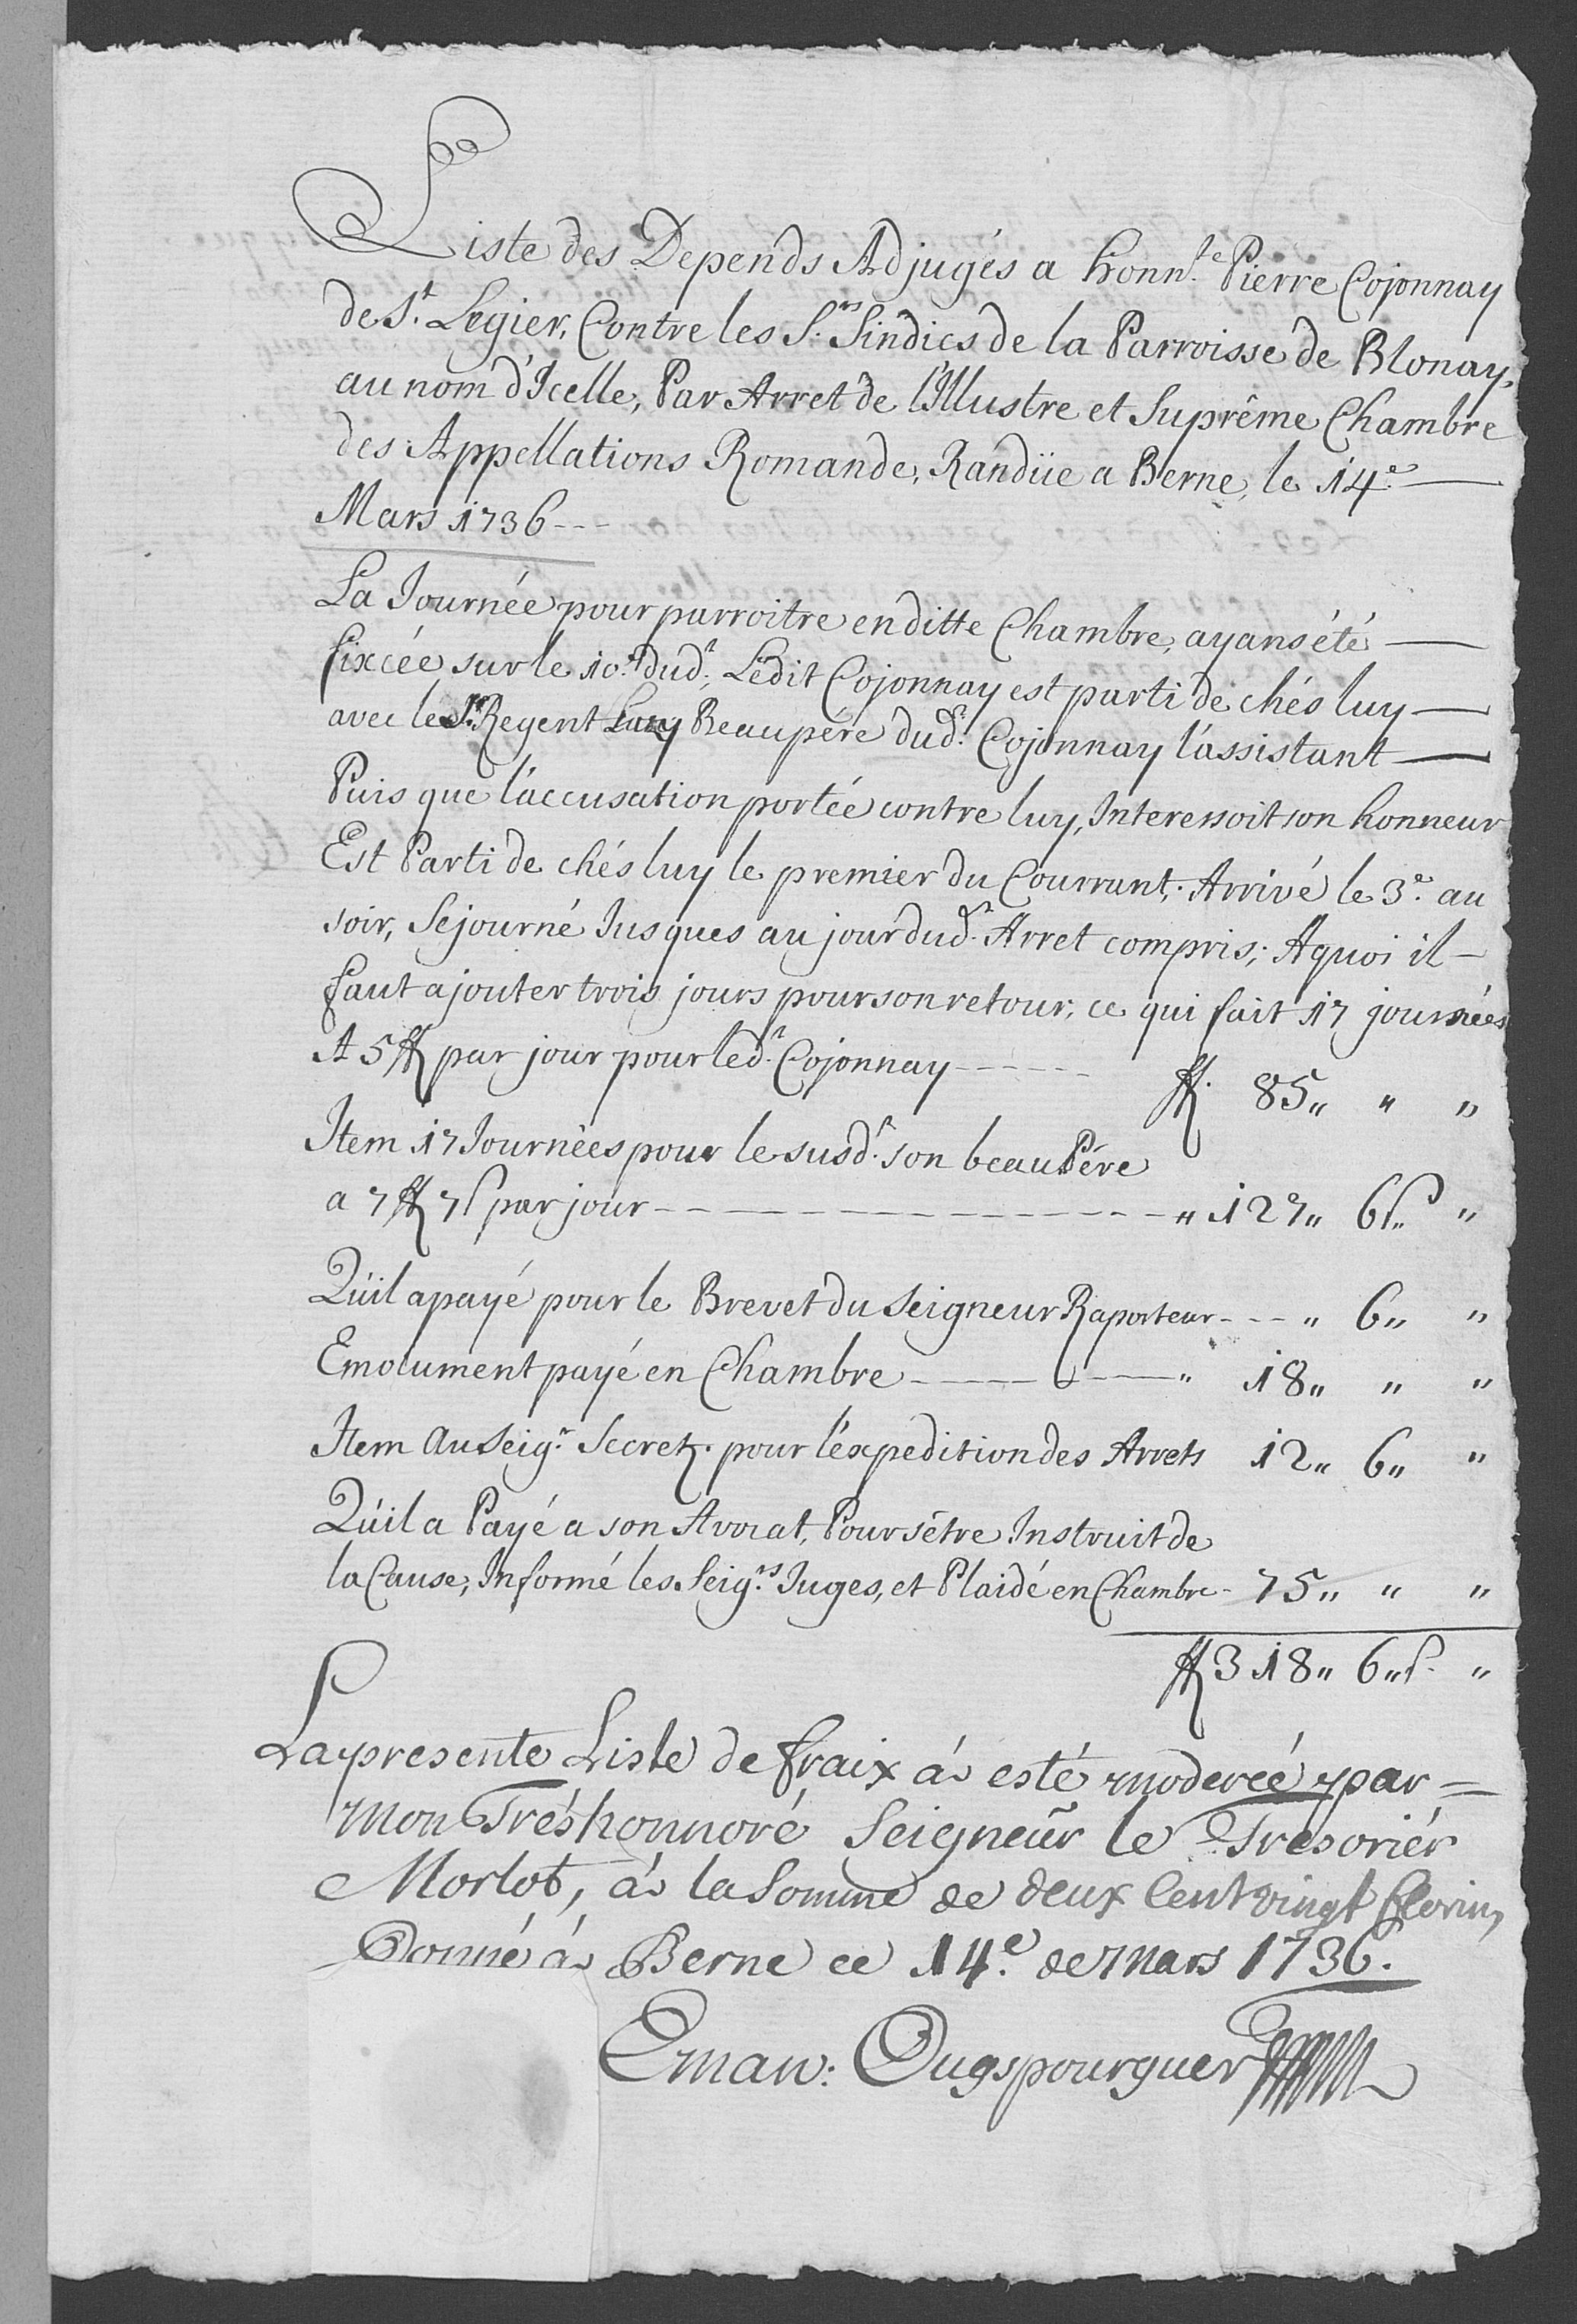 Liste des Depends Adjugés a honn.te Pierre Cojonnay
de St. Legier, Contre les S.rs Sindics de la Parroisse de Blonay,
au nom d'Icelle, Par Arret de l'Illustre et Suprême Chambre
des Appellations Romande, Randüe a Berne, le 14.e —
Mars 1736 ---
La Journée pour parroitre en ditte Chambre, ayans été —
fixcée sur le 10.e dud.t, Ledit Cojonnay est parti de chés luy —
avec le S.r Regent Beaupére dud.t Cojonnay l'assistant —
Puis que l'accusation portée contre luy, Interessoit son honneur
Est Parti de chés luy le premier du Courrant, Arrivé le 3.e au
soir, Sejourné Jusques au jour dud.t Arret compris; A quoi il —
faut ajouter trois jours pour son retour, ce qui fait 17 journées
A 5 ff par jour pour led.t Cojonnay ------ ff. 85 „ „ „
Item 17 Journées pour le susd.t son beau Pére
a 7 ff 7 s par jour --- „ 127 „ 6 s. „
Qu'il a payé pour le Brevet du Seigneur Raporteur --- „ 6 „ „
Emolument payé en Chambre --- „ 18 „ „ „
Item au Seig.r Secret. pour l'éxpedition des Arrets 12 „ 6 „ „
Qu'il a Payé a son Avocat, Pour s'étre Instruit de
la Cause, Informé les Seig.rs Juges, et Plaidé en Chambre - 75 „ „ „
ff 318 „ 6 „ s. „
La presente Liste de fraix á esté moderée par =
mon Trés honnoré Seigneur le Tresoriér
Morlot, á la Somme de deux Cent vingt florins,
Donné á Berne ce 14.e de Mars 1736.
Eman: Ougspourguer